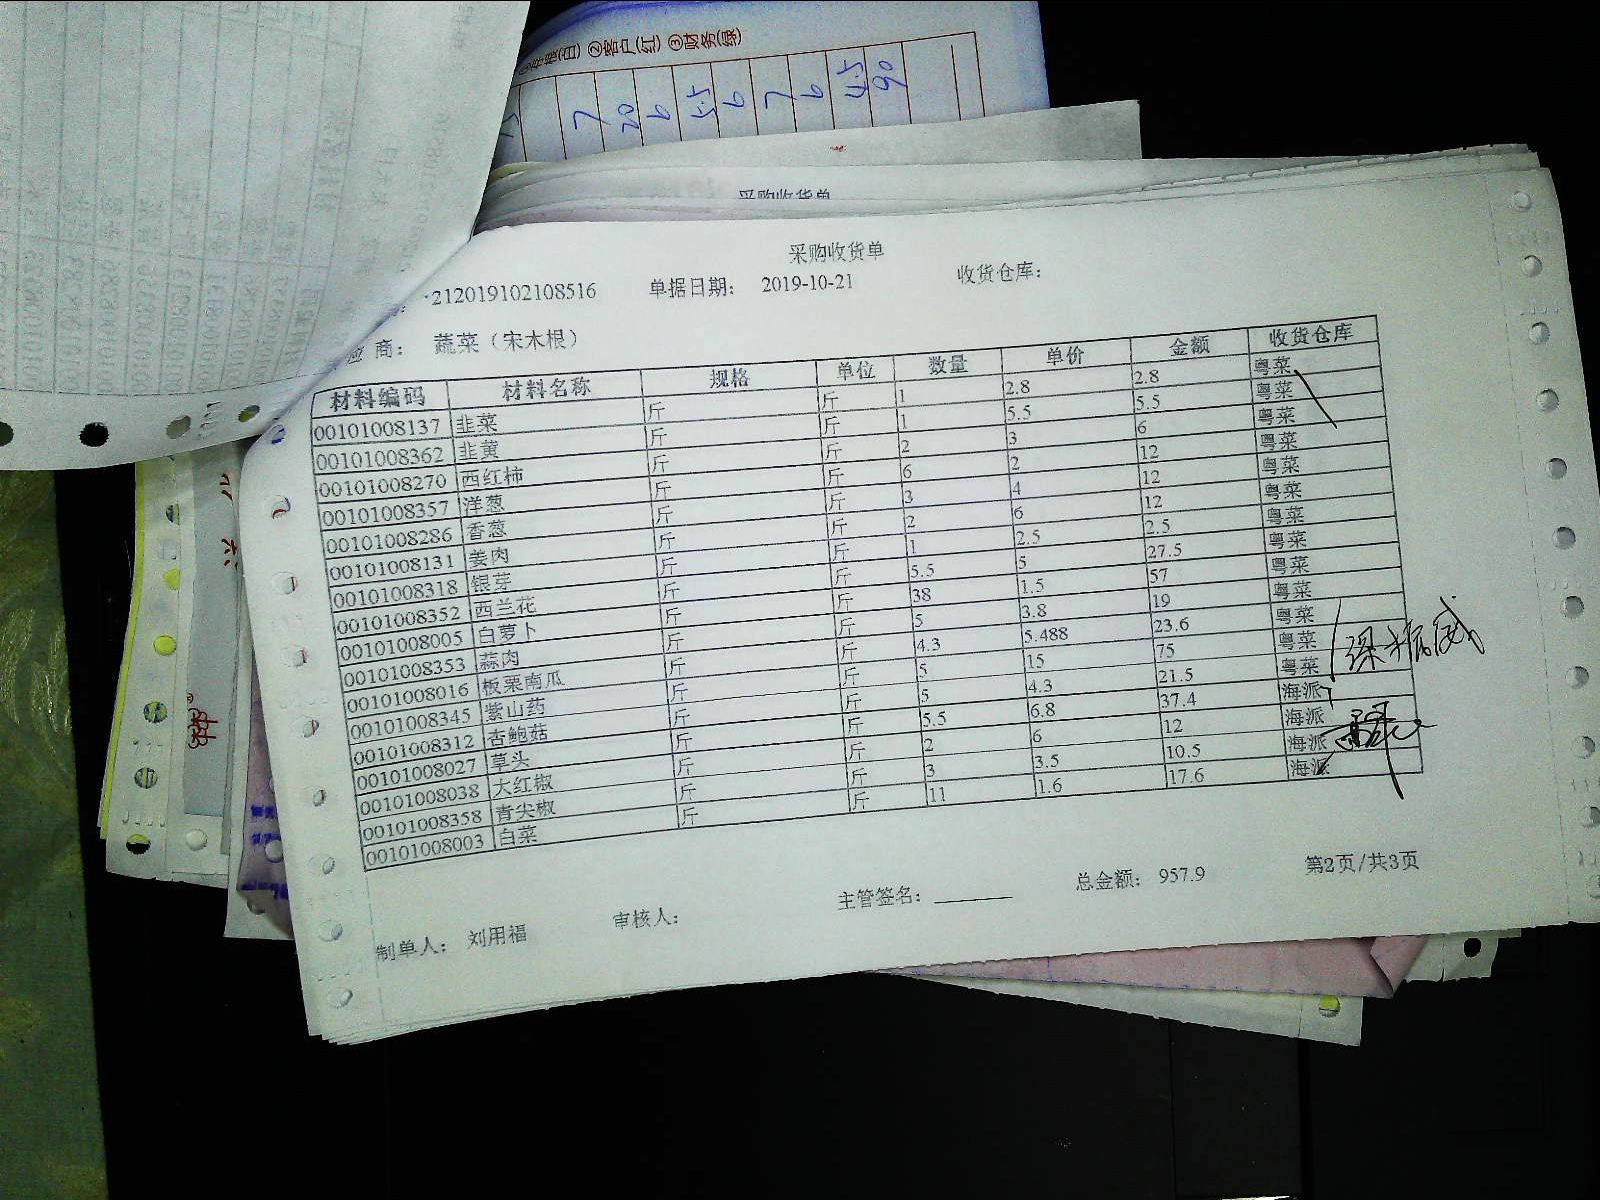 ①存根(白) ②客户(红) ③财务(绿)
采购收货单
采购收货单
212019102108516 单据日期: 2019-10-21 收货仓库:
应 商: 蔬菜（宋木根）
材料编码 材料名称 规格 单位 数量 单价 金额 收货仓库
00101008137 韭菜 斤 斤 1 2.8 2.8 粤菜
00101008362 韭黄 斤 斤 1 5.5 5.5 粤菜
00101008270 西红柿 斤 斤 2 3 6 粤菜
00101008357 洋葱 斤 斤 6 2 12 粤菜
00101008286 香葱 斤 斤 3 4 12 粤菜
00101008131 姜肉 斤 斤 2 6 12 粤菜
00101008318 银芽 斤 斤 1 2.5 2.5 粤菜
00101008352 西兰花 斤 斤 5.5 5 27.5 粤菜
00101008005 白萝卜 斤 斤 38 1.5 57 粤菜
00101008353 蒜肉 斤 斤 5 3.8 19 粤菜
00101008016 板栗南瓜 斤 斤 4.3 5.488 23.6 粤菜
00101008345 紫山药 斤 斤 5 15 75 粤菜
00101008312 杏鲍菇 斤 斤 5 4.3 21.5 粤菜
00101008027 草头 斤 斤 5.5 6.8 37.4 海派
00101008038 大红椒 斤 斤 2 6 12 海派
00101008358 青尖椒 斤 斤 3 3.5 10.5 海派
00101008003 白菜 斤 斤 11 1.6 17.6 海派
制单人: 刘用福 审核人: 主管签名: 总金额: 957.9 第2页/共3页